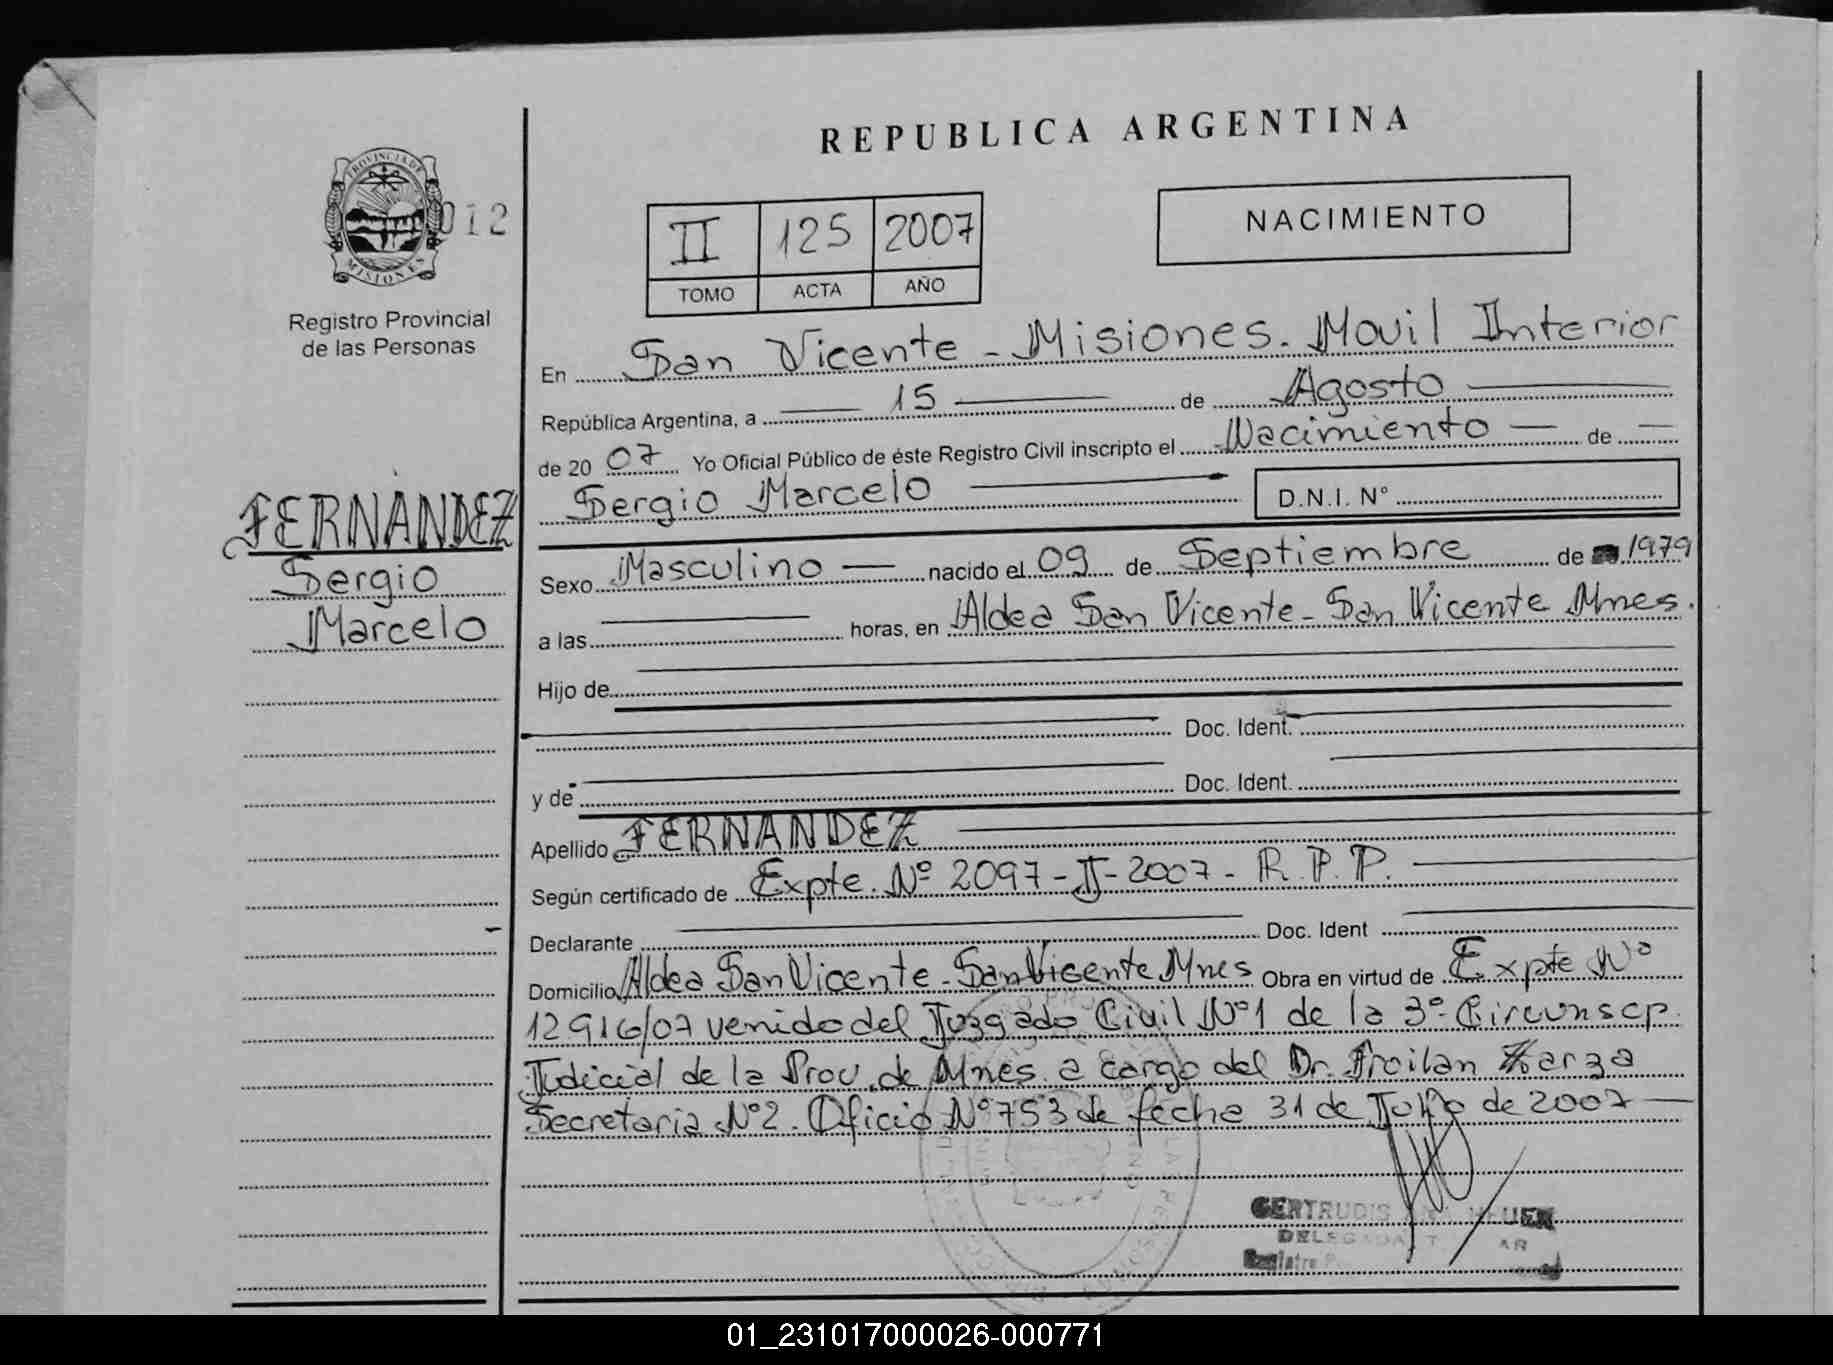 REPUBLICA ARGENTINA
PROVINCIA DE
MISIONES
012
Registro Provincial
de las Personas
II 125 2007
TOMO ACTA AÑO
NACIMIENTO
En San Vicente - Misiones. Movil Interior
República Argentina, a 15 de Agosto
de 20 07 Yo Oficial Público de éste Registro Civil inscripto el Nacimiento de
Sergio Marcelo D.N.I. N°
FERNÁNDEZ
Sergio
Marcelo
Sexo Masculino nacido el 09 de Septiembre de 1979
a las horas, en Aldea San Vicente - San Vicente Mnes.
Hijo de
Doc. Ident.
y de Doc. Ident.
Apellido FERNANDEZ
Según certificado de Expte. Nº 2097 - II - 2007 - R.P.P.
Declarante Doc. Ident
Domicilio Aldea San Vicente - San Vicente Mnes Obra en virtud de Expte Nº
12916/07 venido del Juzgado Civil Nº1 de la 3º Circunscp.
Judicial de la Prov. de Mnes. a cargo del Dr. Froilan Zarza
Secretaria Nº2. Oficio Nº 753 de fecha 31 de Julio de 2007
GERTRUDIS
DELEGADA
Registro
01_231017000026-000771